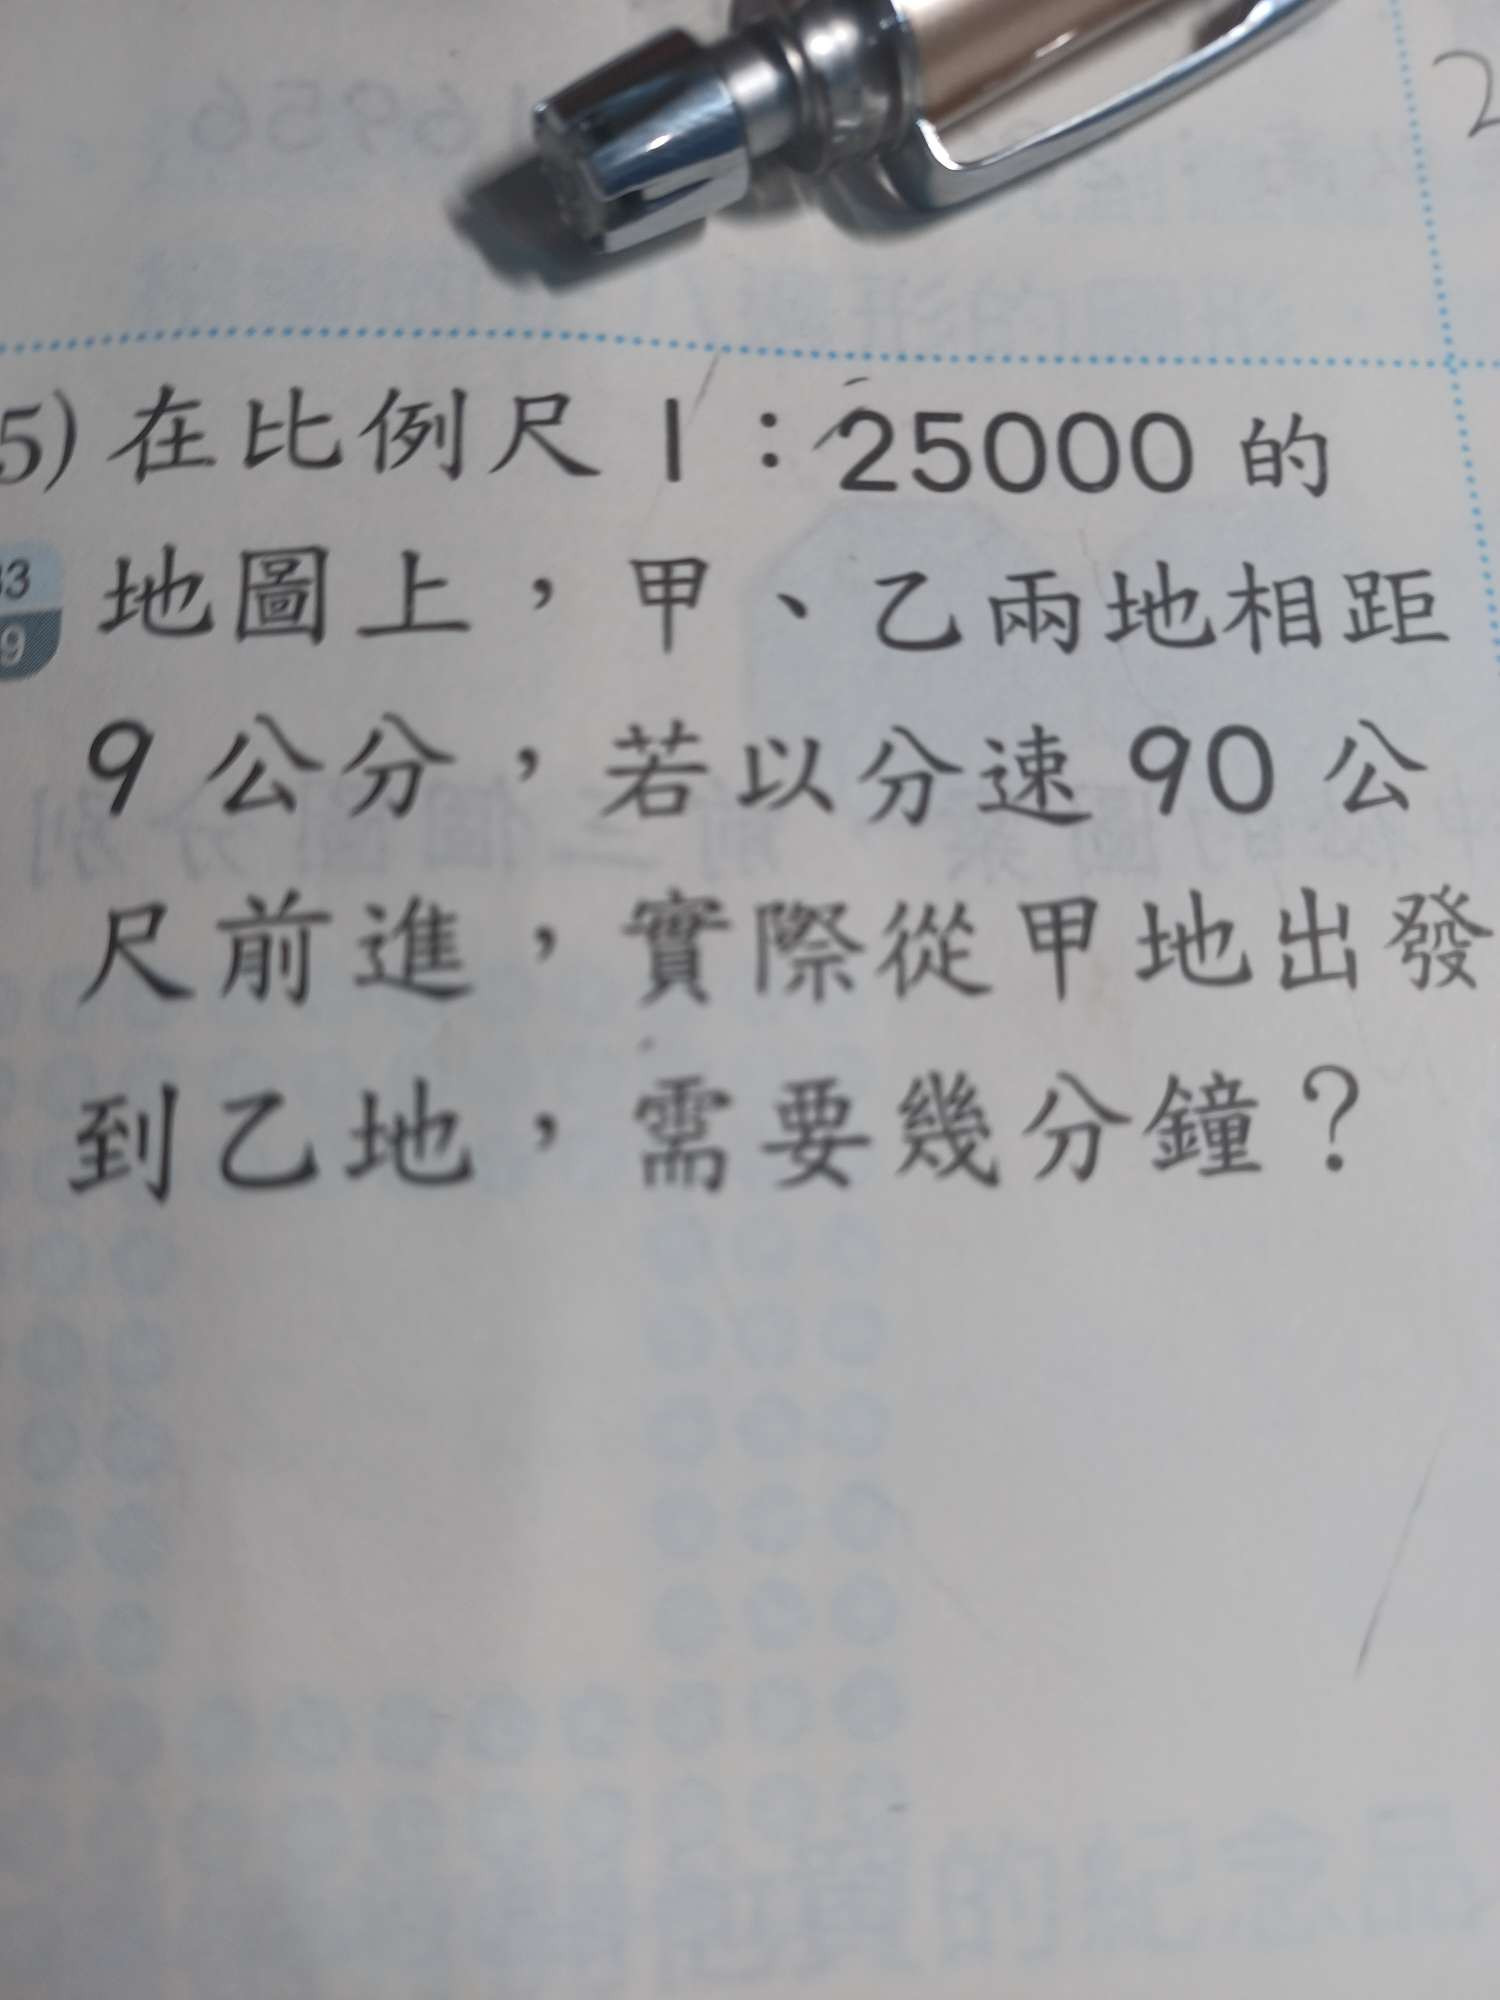 2
5) 在比例尺 1：25000 的
地圖上，甲、乙兩地相距
9 公分，若以分速 90 公
尺前進，實際從甲地出發
到乙地，需要幾分鐘？
33
9